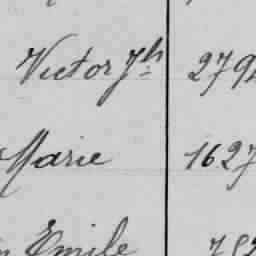 Victor Jh 279
Marie 1627
Emile